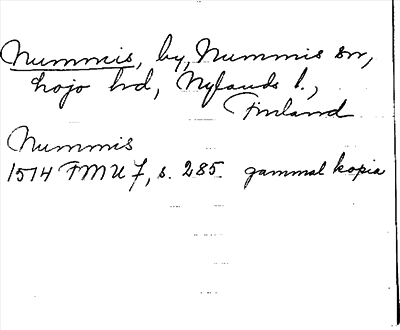 Nummis, by, Nummis sn,
Lojo hd, Nylands l.,
Finland
Nummis
1514 FMU 7, s. 285. gammal kopia